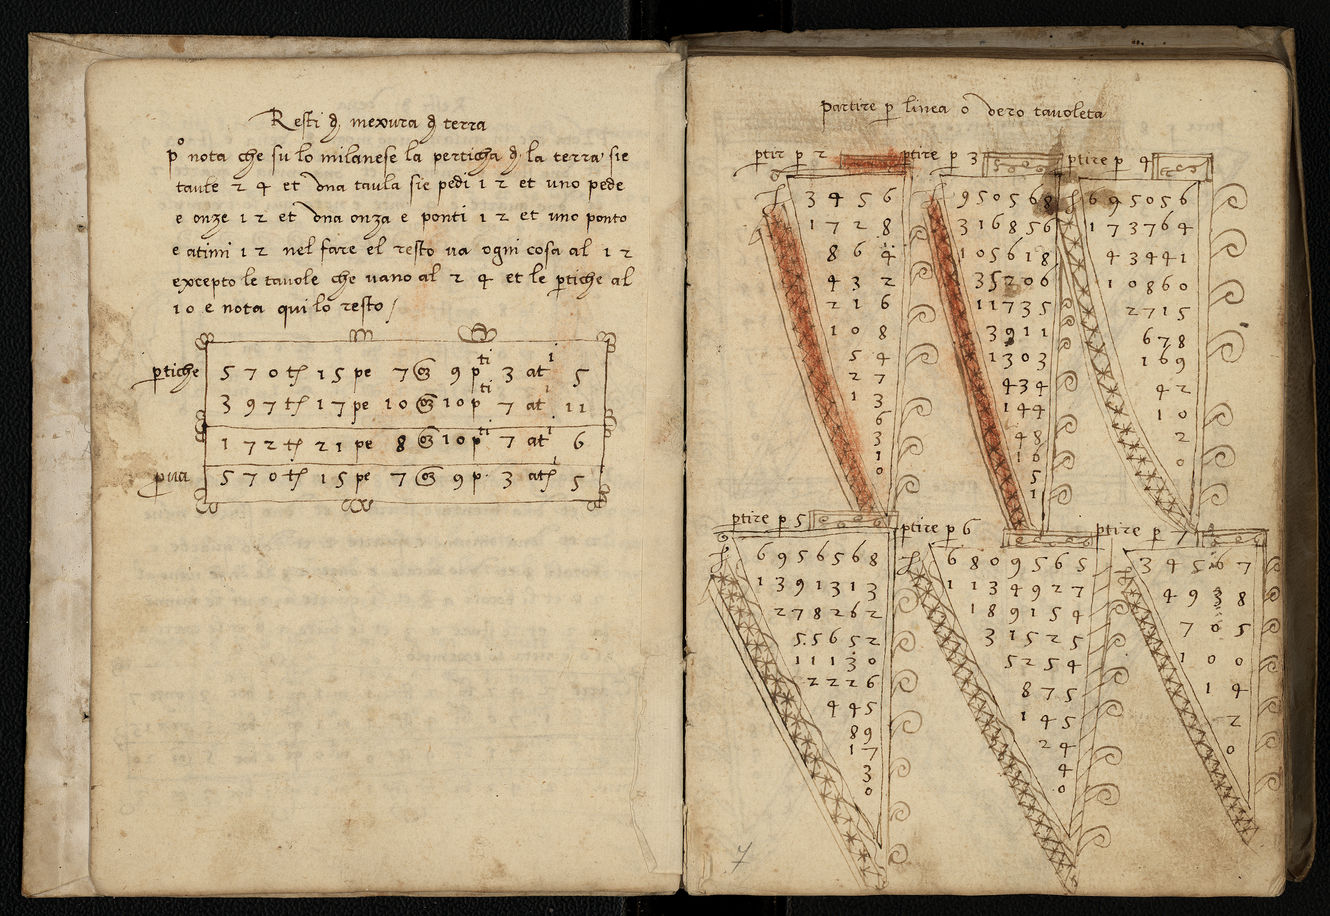 Resti d mexura d terra
po nota che su lo milanese la perticha d la terra sie
taule 24 et una taula sie pedi 12 et uno pede
e onze 12 et una onza e ponti 12 et uno ponto
e atimi 12 nel fare el resto va ogni cosa al 12
excepto le tavole che vano al 24 et le ptiche al
10 e nota qui lo resto /
ptiche 570 t 15 pe 7 oz 9 p ti 3 at i 5
397 t 17 pe 10 oz 10 p ti 7 at i 11
172 t 21 pe 8 oz 10 p ti 7 at i 6
pva 570 t 15 pe 7 oz 9 p 3 at 5
Partire p linea o vero tavoleta
ptir p 2
3456
1728
864
432
216
108
54
27
13
6
3
1
0
ptire p 3
950568
316856
105618
35206
11735
3911
1303
434
144
48
16
5
1
ptire p 4
695056
173764
43441
10860
2715
678
169
42
10
2
0
ptire p 5
6956568
1391313
278262
55652
11130
2226
445
89
17
3
0
ptire p 6
6809565
1134927
189154
31525
5254
875
145
24
4
0
ptire p 7
34567
4938
705
100
14
2
0
7